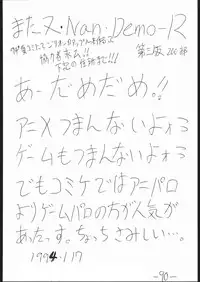 また又・Nan・Demo-R
協力者求ム!!
下記の住所まで!!!
第三版 200部
あーだめだめ。!!
アニメつまんないよォぅ
ゲームもつまんないよォぅ
でもコミケではアニパロ
よりゲームパロの方が人気が
あったっす。ちょっちさみしい…。
1994.1.17
-90-